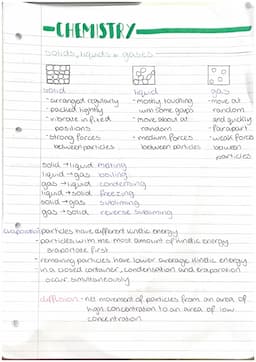 -CHEMISTRY-
solids, liquids & gases
solid liquid gas
- arranged regularly - mostly touching - move at
- packed tightly w/m some gaps random
- vibrate in fixed - move about at and quickly
positions random - far apart
- strong forces - medium forces - weak forces
between particles between particles between
particles
solid → liquid melting
liquid → gas boiling
gas → liquid condensing
liquid → solid freezing
solid → gas subliming
gas → solid reverse subliming
evaporation particles have different kinetic energy
- particles with the most amount of kinetic energy
evaporate first
- remaining particles have lower average kinetic energy
- in a closed container, condensation and evaporation
occur simultaneously
diffusion - net movement of particles from an area of
high concentration to an area of low
concentration